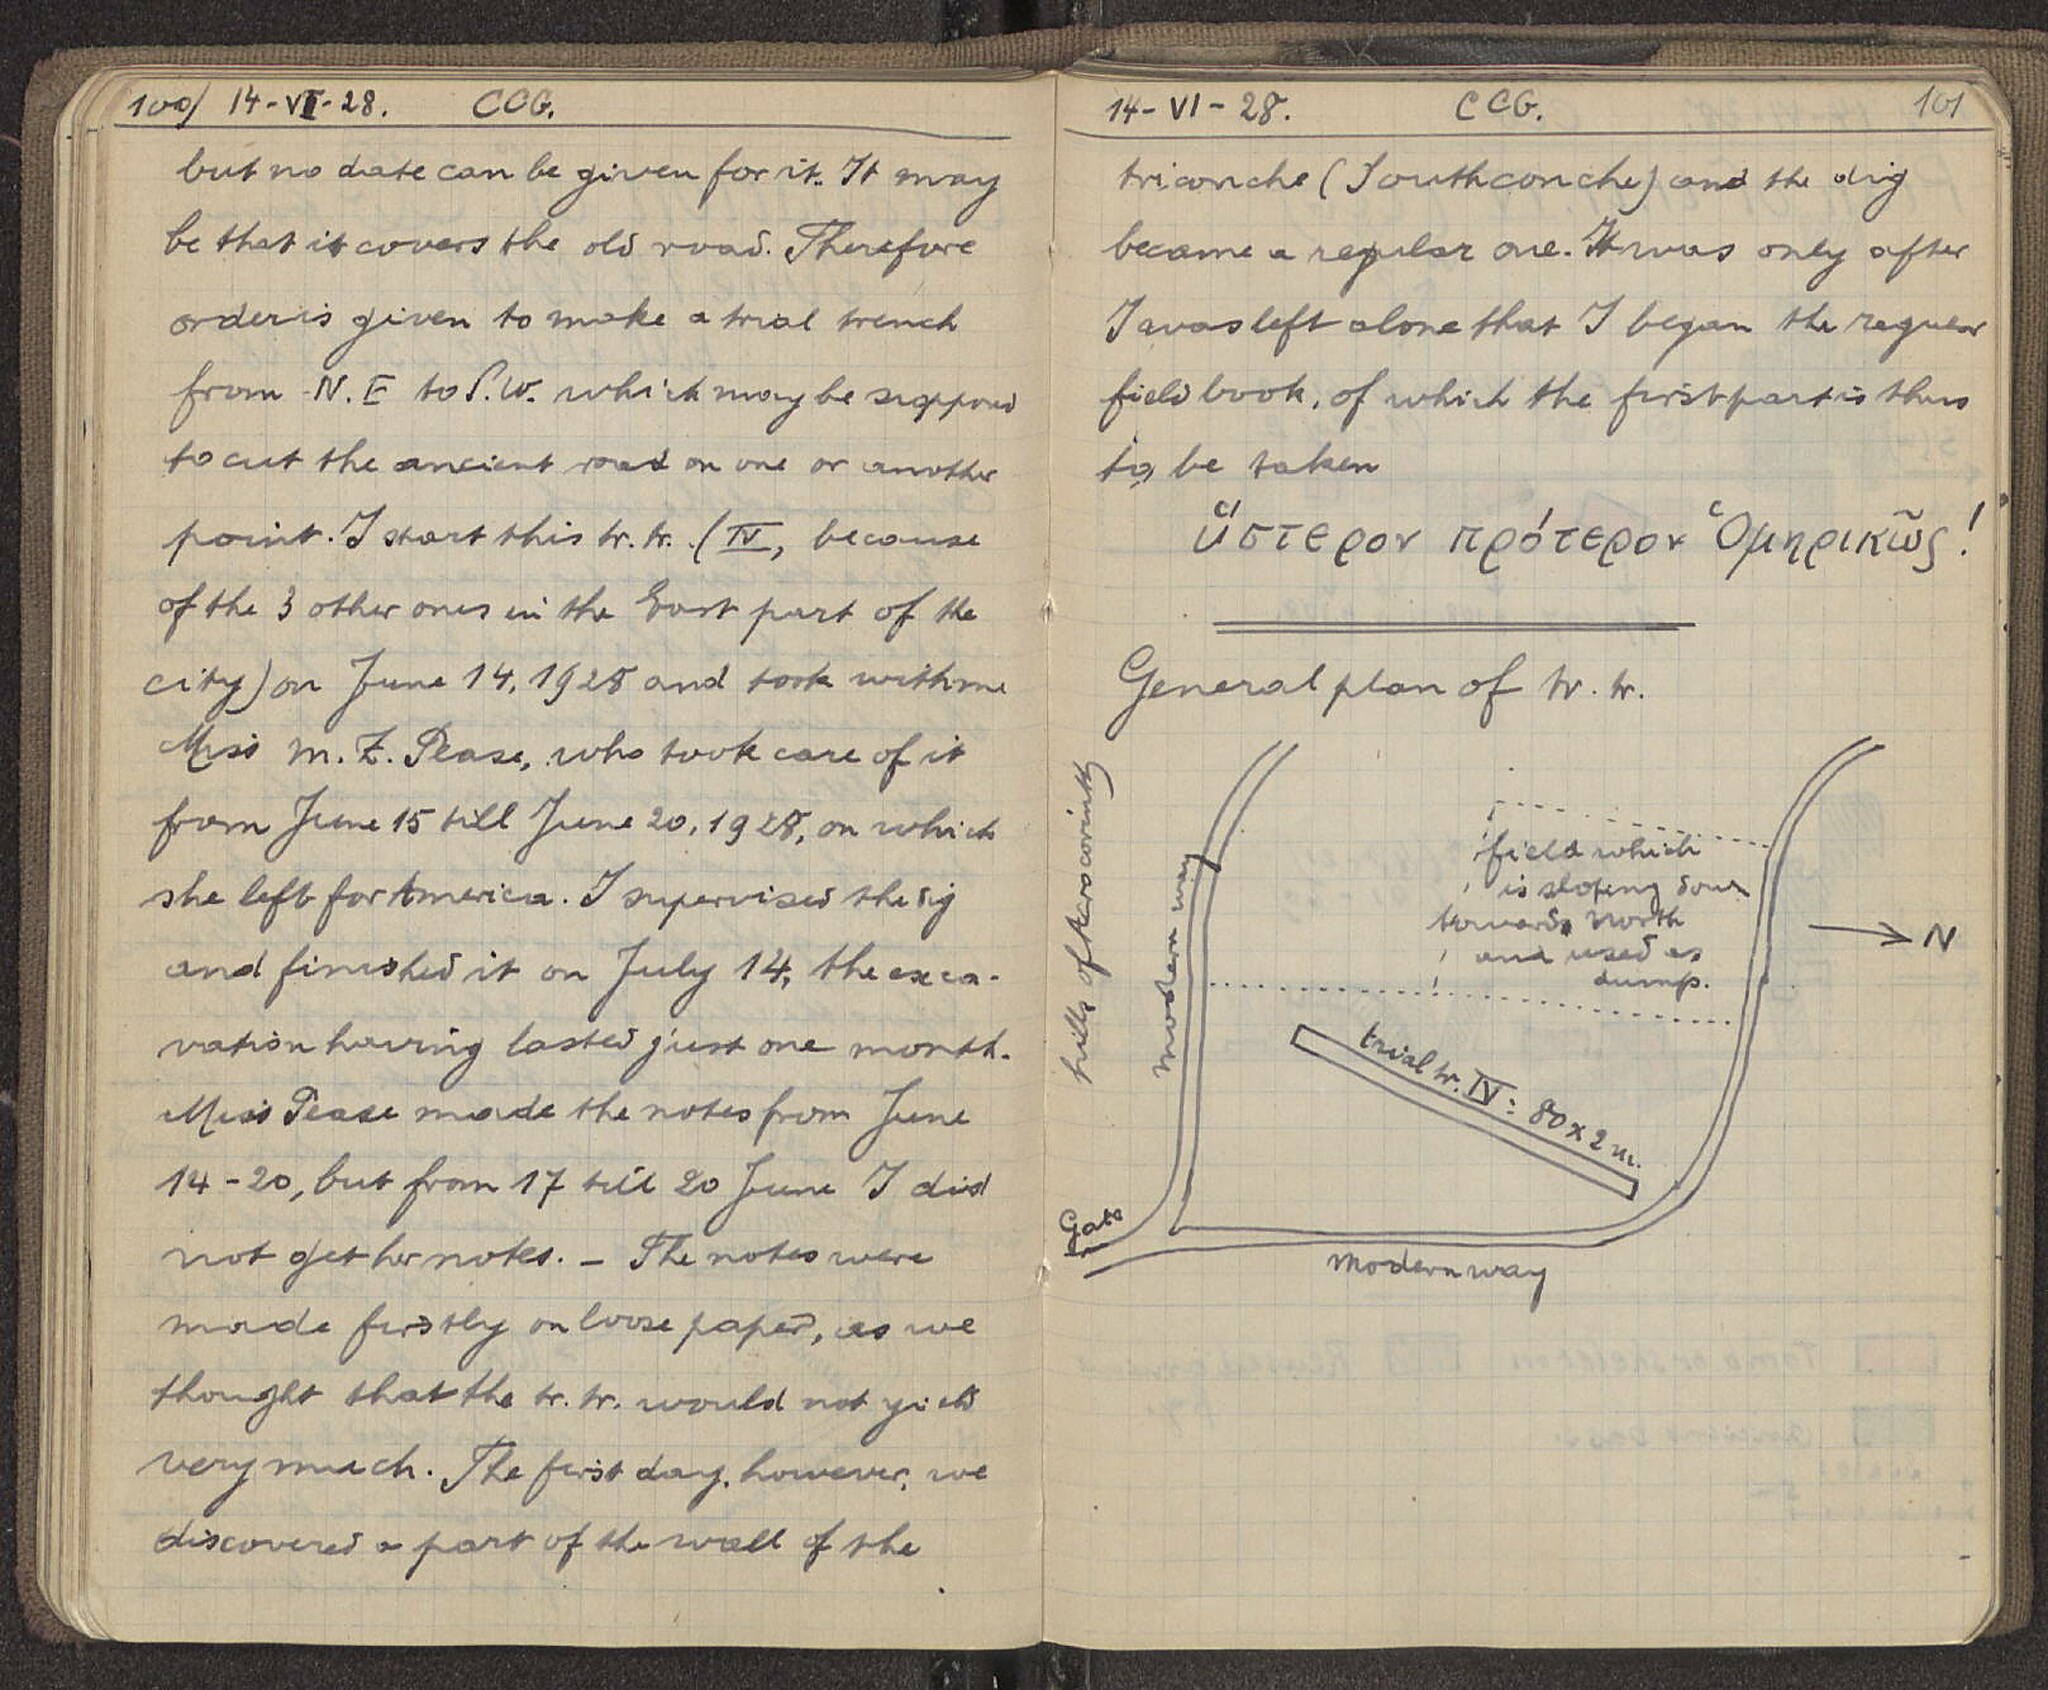 100) 14-VI-28. CCG.
but no date can be given for it. It may
be that it covers the old road. Therefore
order is given to make a trial trench
from N. E to S.W. which may be supposed
to cut the ancient road on one or another
point. I start this tr. tr. (IV, because
of the 3 other ones in the East part of the
city) on June 14, 1928 and took with me
Miss M. Z. Pease, who took care of it
from June 15 till June 20, 1928, on which
she left for America. I supervised the dig
and finished it on July 14, the exca-
vation having lasted just one month.
Miss Pease made the notes from June
14-20, but from 17 till 20 June I did
not get her notes. – The notes were
made firstly on loose paper, as we
thought that the tr. tr. would not yield
very much. The first day, however, we
discovered a part of the wall of the
14-VI-28. CCG. 101
triconche (Southconche) and the dig
became a regular one. It was only after
I was left alone that I began the regular
field book, of which the first part is thus
to be taken
ὕστερον πρότερον Ὁμηρικῶς!
General plan of tr. tr.
hills of Akrocorinth
modern way
field which
is sloping down
towards north
and used as
dump.
N
trial tr. IV: 80 x 2 m.
Gate
modern way